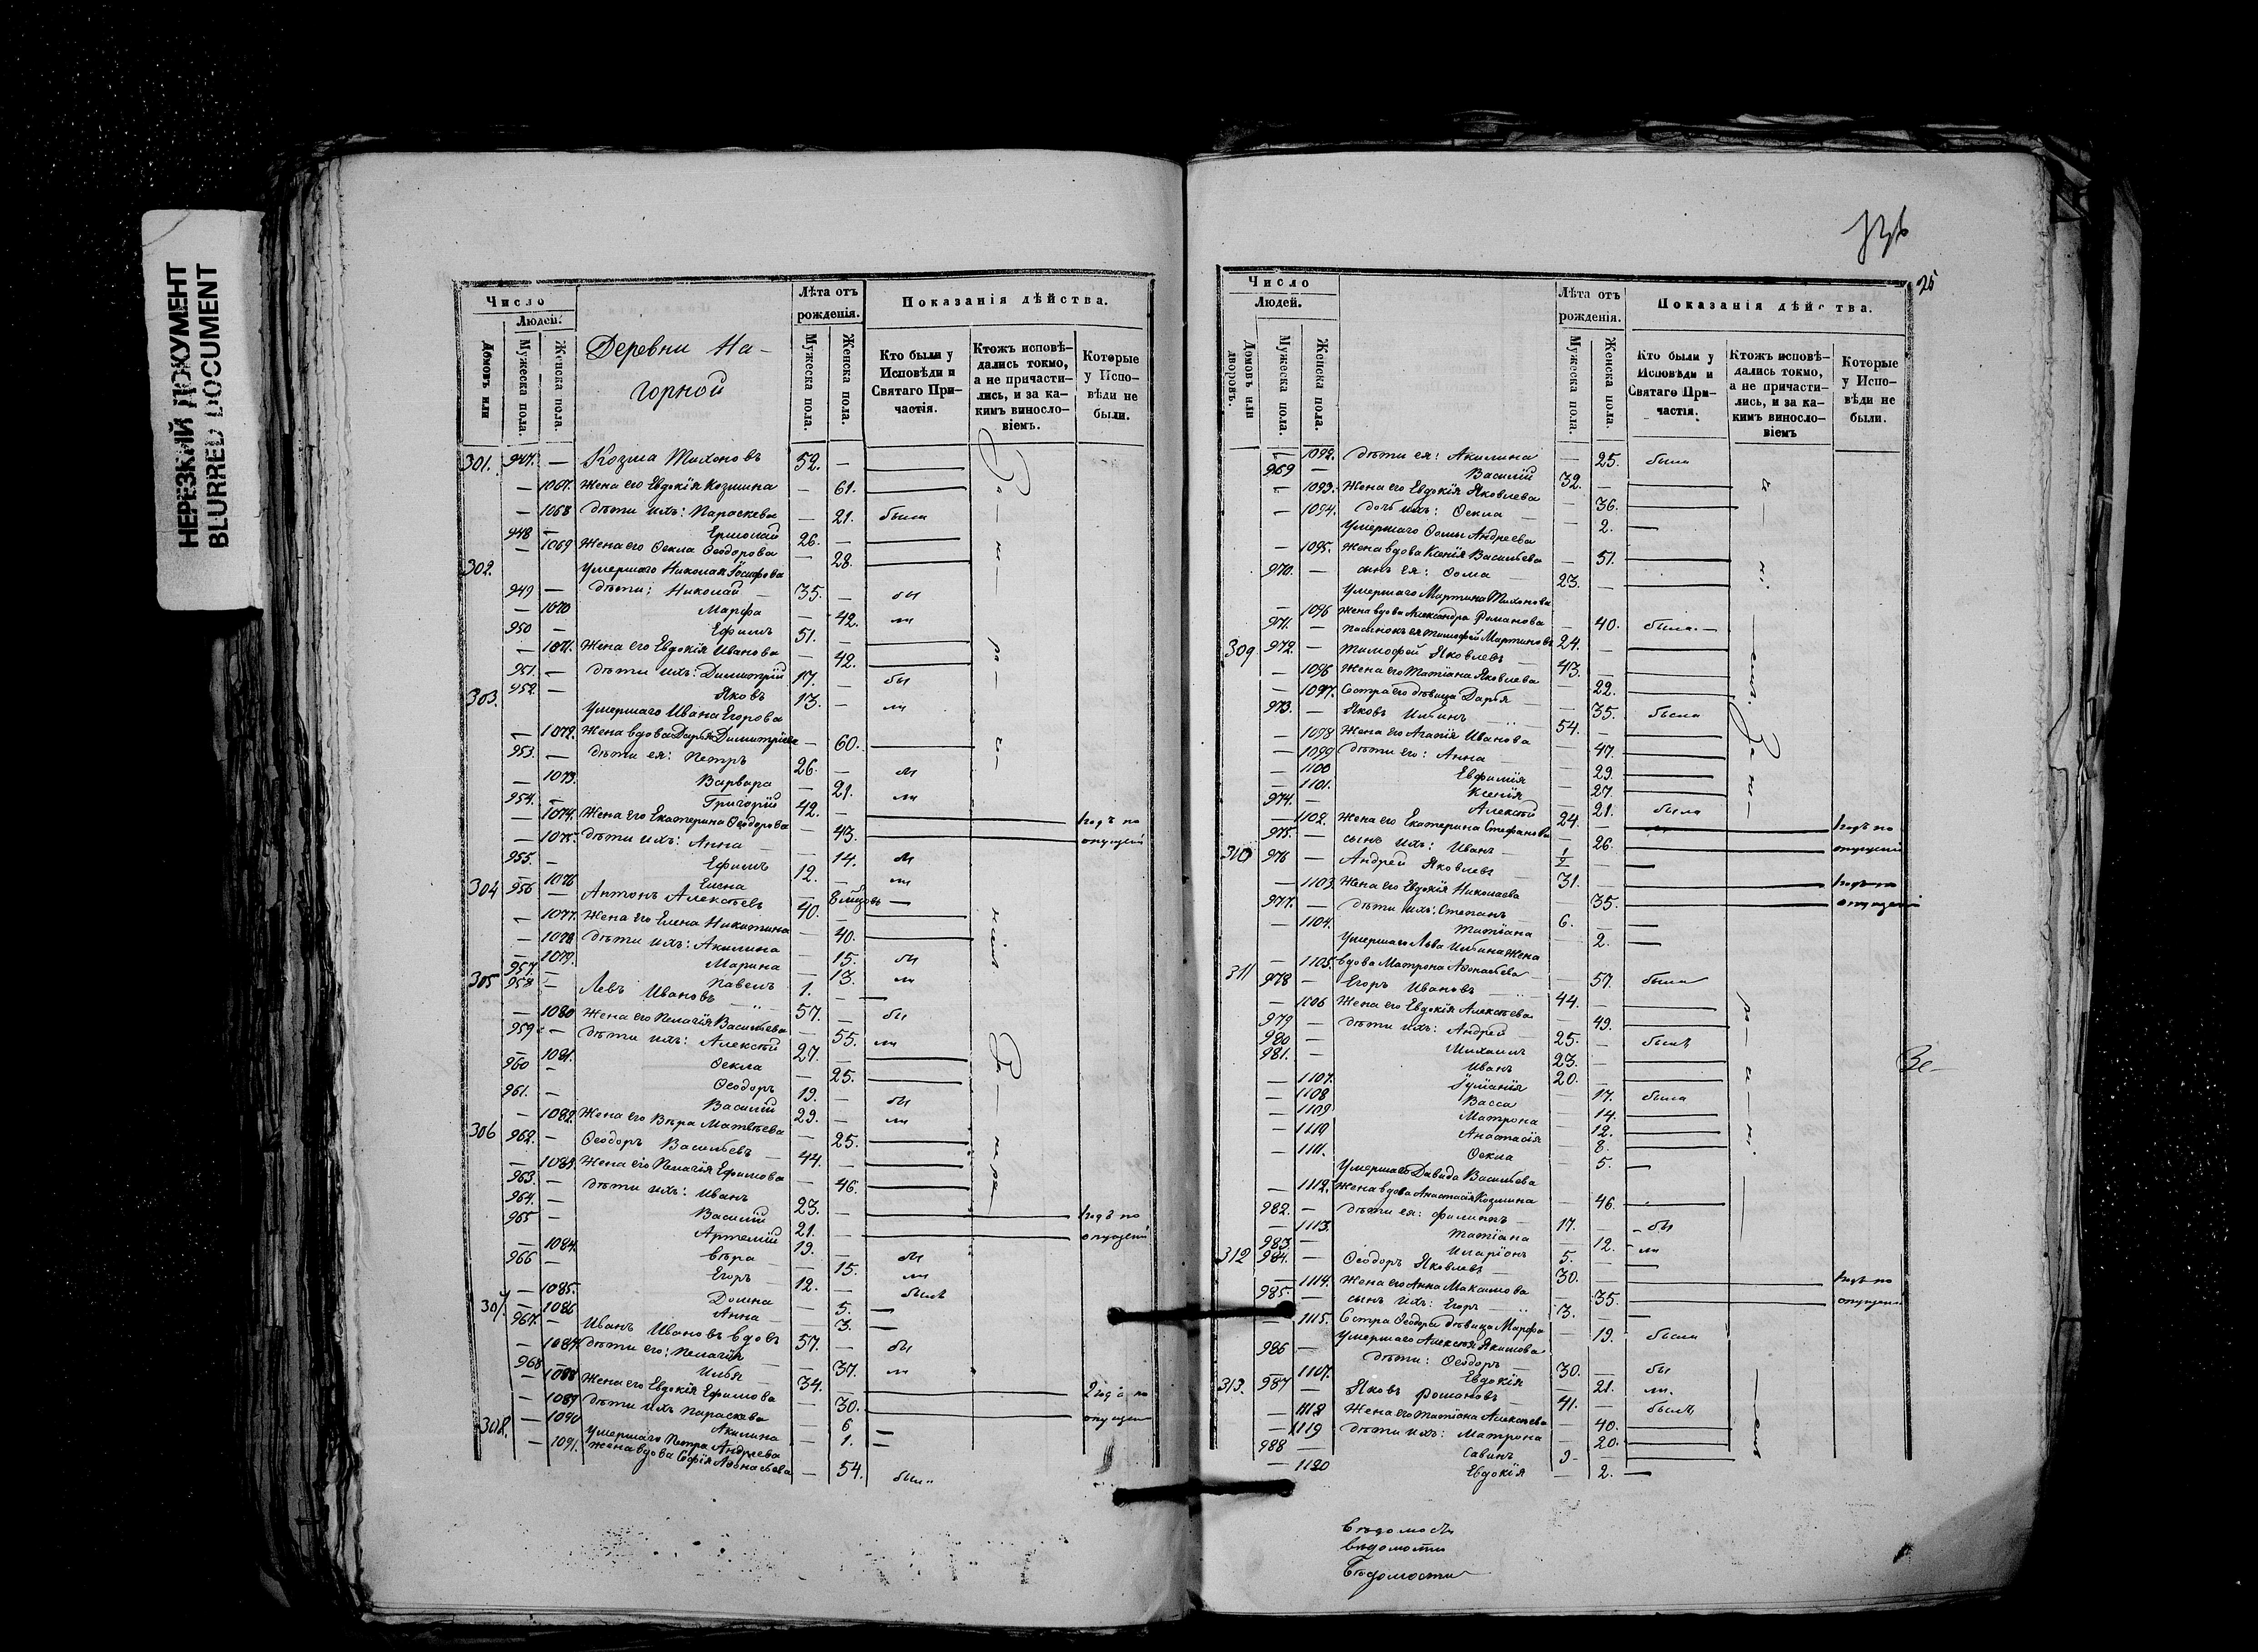 НЕРЕЗКИЙ ДОКУМЕНТ
BLURRED DOCUMENT
Число
Людей.
Домовъ или
Мужеска пола.
Женска пола.
Деревни На-
горной
Лѣта отъ рожденія.
Мужеска пола.
Женска пола.
Показанія дѣйства.
Кто были у Исповѣди и Святаго Причастія.
Ктожъ исповѣдались токмо, а не причастились, и за какимъ винословіемъ.
Которые у Исповѣди не были.
301. 947. — Козма Тихоновъ 52. —
— 1067. Жена его Евдокія Козмина — 61.
— 1068 дѣти ихъ: Параскева — 21. была
948 — Ермолай 26. —
— 1069 Жена его Ѳекла Ѳеодорова — 28.
302. Умершаго Николая Іосифова
949 — дѣти: Николай 35. — бы
— 1070 Марфа — 42. ли
950 — Ефимъ 51. —
— 1071. Жена его Евдокія Иванова — 42.
951. — дѣти ихъ: Димитрій 17. — бы
952. — Яковъ 13. — ли
303. Умершаго Ивана Егорова
— 1072. Жена вдова Дарья Димитріева — 60.
953. — дѣти ея: Петръ 26. — бы
— 1073. Варвара — 21. ли
954. — Григорій 42. —
— 1074. Жена его Екатерина Ѳеодорова — 43. Годъ по
— 1075. дѣти ихъ: Анна — 14. бы опущен
955. — Ефимъ 12. — ли
— 1076 Елена —
304 956 — Антонъ Алексѣевъ 40. —
— 1077. Жена его Елена Никитина — 40.
— 1078 дѣти ихъ: Акилина — 15. бы
— 1079. Марина — 13. ли
957 — Павелъ 1. —
305 958 — Левъ Ивановъ 57. — бы
— 1080 Жена его Пелагія Васильева — 55. ли
959 — дѣти ихъ: Алексѣй 27. —
— 1081. Ѳекла — 25.
960 — Ѳеодоръ 19. — бы
961. — Василій 29. — ли
— 1082. Жена его Вѣра Матвѣева — 25.
306 962. — Ѳеодоръ Васильевъ 44. —
— 1083. Жена его Пелагія Ефимова — 46.
963. — дѣти ихъ: Иванъ 23. — Годъ по
964. — Василій 21. — опущен
965 — Артемій 19. — бы
— 1084. Вѣра — 15. ли
966 — Егоръ 12. — былъ
— 1085. Домна — 5. —
— 1086 Анна — 3. —
307 967. — Иванъ Ивановъ вдовъ 57. — бы
— 1087. дѣти его: Пелагія — 37. ли
968 — Илья 34. —
— 1088 Жена его Евдокія Ефимова — 30. 2 года по
— 1089 дѣти ихъ Параскева — 6 опущен
— 1090 Акилина — 1. —
308. Умершаго Петра Андреева
— 1091. жена вдова Софія Аѳонасьева — 54. была
25
Число
Людей.
Домовъ или дворовъ.
Мужеска пола.
Женска пола.
Лѣта отъ рожденія.
Мужеска пола.
Женска пола.
Показанія дѣйства.
Кто были у Исповѣди и Святаго Причастія.
Ктожъ исповѣдались токмо, а не причастились, и за какимъ винословіемъ
Которые у Исповѣди не были.
— 1092. дѣти ея: Акилина — 25. была
969 — Василій 32. —
— 1093. Жена его Евдокія Яковлева — 36.
— 1094. дочь ихъ: Ѳекла — 2. —
Умершаго Ѳомы Андреева
— 1095. Жена вдова Ксенія Васильева — 51.
970. — сынъ ея: Ѳома 23. —
Умершаго Мартина Тихонова
— 1096 Жена вдова Александра Романова — 40. была
971. — пасынокъ ея Тимофей Мартиновъ 24. —
309 972. — Тимофей Яковлевъ 43. —
— 1096 Жена его Татіана Яковлева — 22.
— 1097. Сестра его дѣвица Дарья — 35. была
973. — Яковъ Ильинъ 54. —
— 1098 Жена его Агапія Иванова — 47.
— 1099 дѣти его: Анна — 29.
— 1100 Евфимія — 27.
— 1101. Ксенія — 21. была
974. — Алексѣй 24. — Годъ по
— 1102. Жена его Екатерина Стефанова — 26. опущен
975. — сынъ ихъ: Иванъ 1/2 —
310 976 — Андрей Яковлевъ 31. — Годъ по
— 1103. Жена его Евдокія Николаева — 35. опущен
977. — дѣти ихъ: Степанъ 6. —
— 1104. Татіана — 2. —
Умершаго Льва Ильина жена
— 1105. вдова Матрона Аѳонасьева — 57. была
311 978 — Егоръ Ивановъ 44. —
— 1106 Жена его Евдокія Алексѣева — 49.
979 — дѣти ихъ: Андрей 25. — былъ
980 — Михаилъ 23. —
981. — Иванъ 20. —
— 1107. Іуліанія — 17. была
— 1108 Васса — 14.
— 1109 Матрона — 12.
— 1110 Анастасія — 8.
— 1111. Ѳекла — 5. —
Умершаго Давида Васильева
— 1112. Жена вдова Анастасія Козмина — 46.
982. — дѣти ея: Филиппъ 17. — бы
— 1113. Татіана — 12. ли
983 — Иларіонъ 5. —
312 984. — Ѳеодоръ Яковлевъ 30. — Годъ по
— 1114. Жена его Анна Максимова — 35. опущен
985. — сынъ ихъ: Егоръ 3. —
— 1115. Сестра Ѳеодора дѣвица Марфа — 19. была
Умершаго Алексѣя Якимова
986 — дѣти: Ѳеодоръ 30. — бы
— 1117. Евдокія — 21. ли.
313. 987 — Яковъ Романовъ 41. — былъ
— 1118 Жена его Татіана Алексѣева — 40.
— 1119 дѣти ихъ: Матрона — 20.
988 — Савинъ 9 —
— 1120 Евдокія — 2. —
Зе-
Вѣдомости
вѣдомости
Вѣдомости